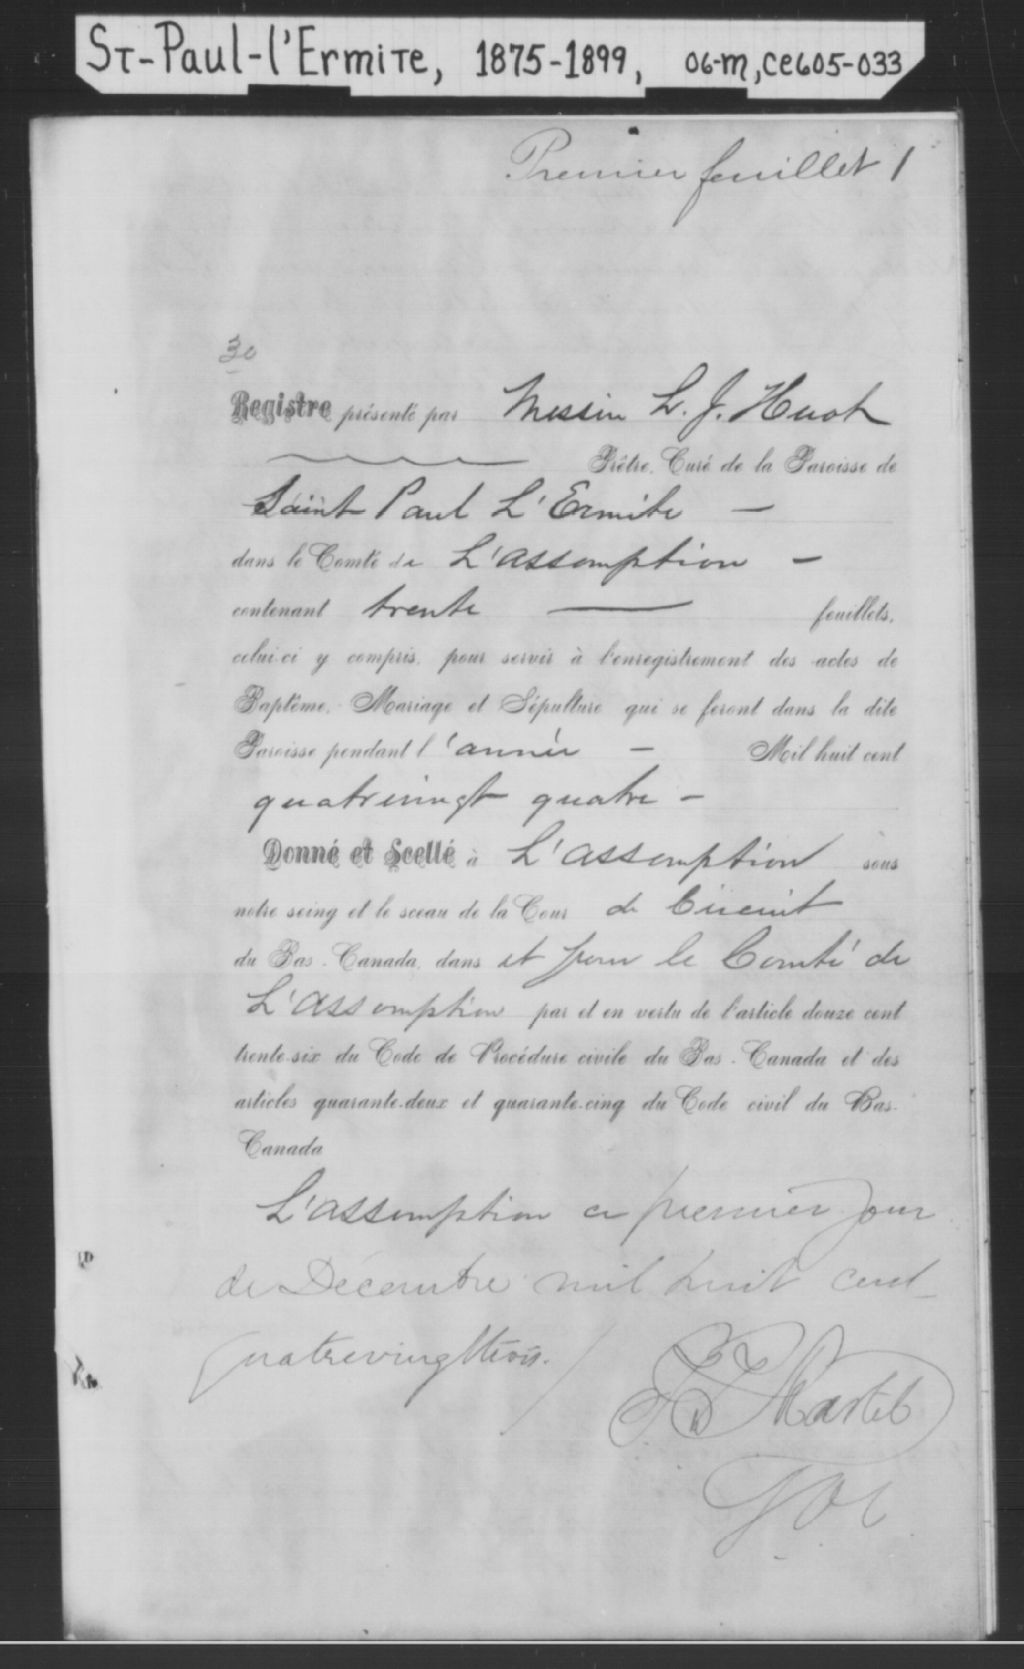 St-Paul-l'Ermite, 1875-1899, 06-m,ce605-033
Premier feuillet 1
30
Registre présenté par Messire L. J. Huot
Prêtre, Curé de la Paroisse de
Saint Paul L'Ermite -
dans le Comté de L'assomption -
contenant trente — feuillets,
celui-ci y compris, pour servir à l'enregistrement des actes de
Baptême, Mariage et Sépulture qui se feront dans la dite
Paroisse pendant l'année - Mil huit cent
quatrevingt quatre -
Donné et Scellé à L'assomption sous
notre seing et le sceau de la Cour de Circuit
du Bas-Canada, dans et pour le Comté de
L'assomption par et en vertu de l'article douze cent
trente-six du Code de Procédure civile du Bas-Canada et des
articles quarante-deux et quarante-cinq du Code civil du Bas-
Canada
L'assomption ce premier jour
de Décembre mil huit cent
quatrevingttrois.
Martel